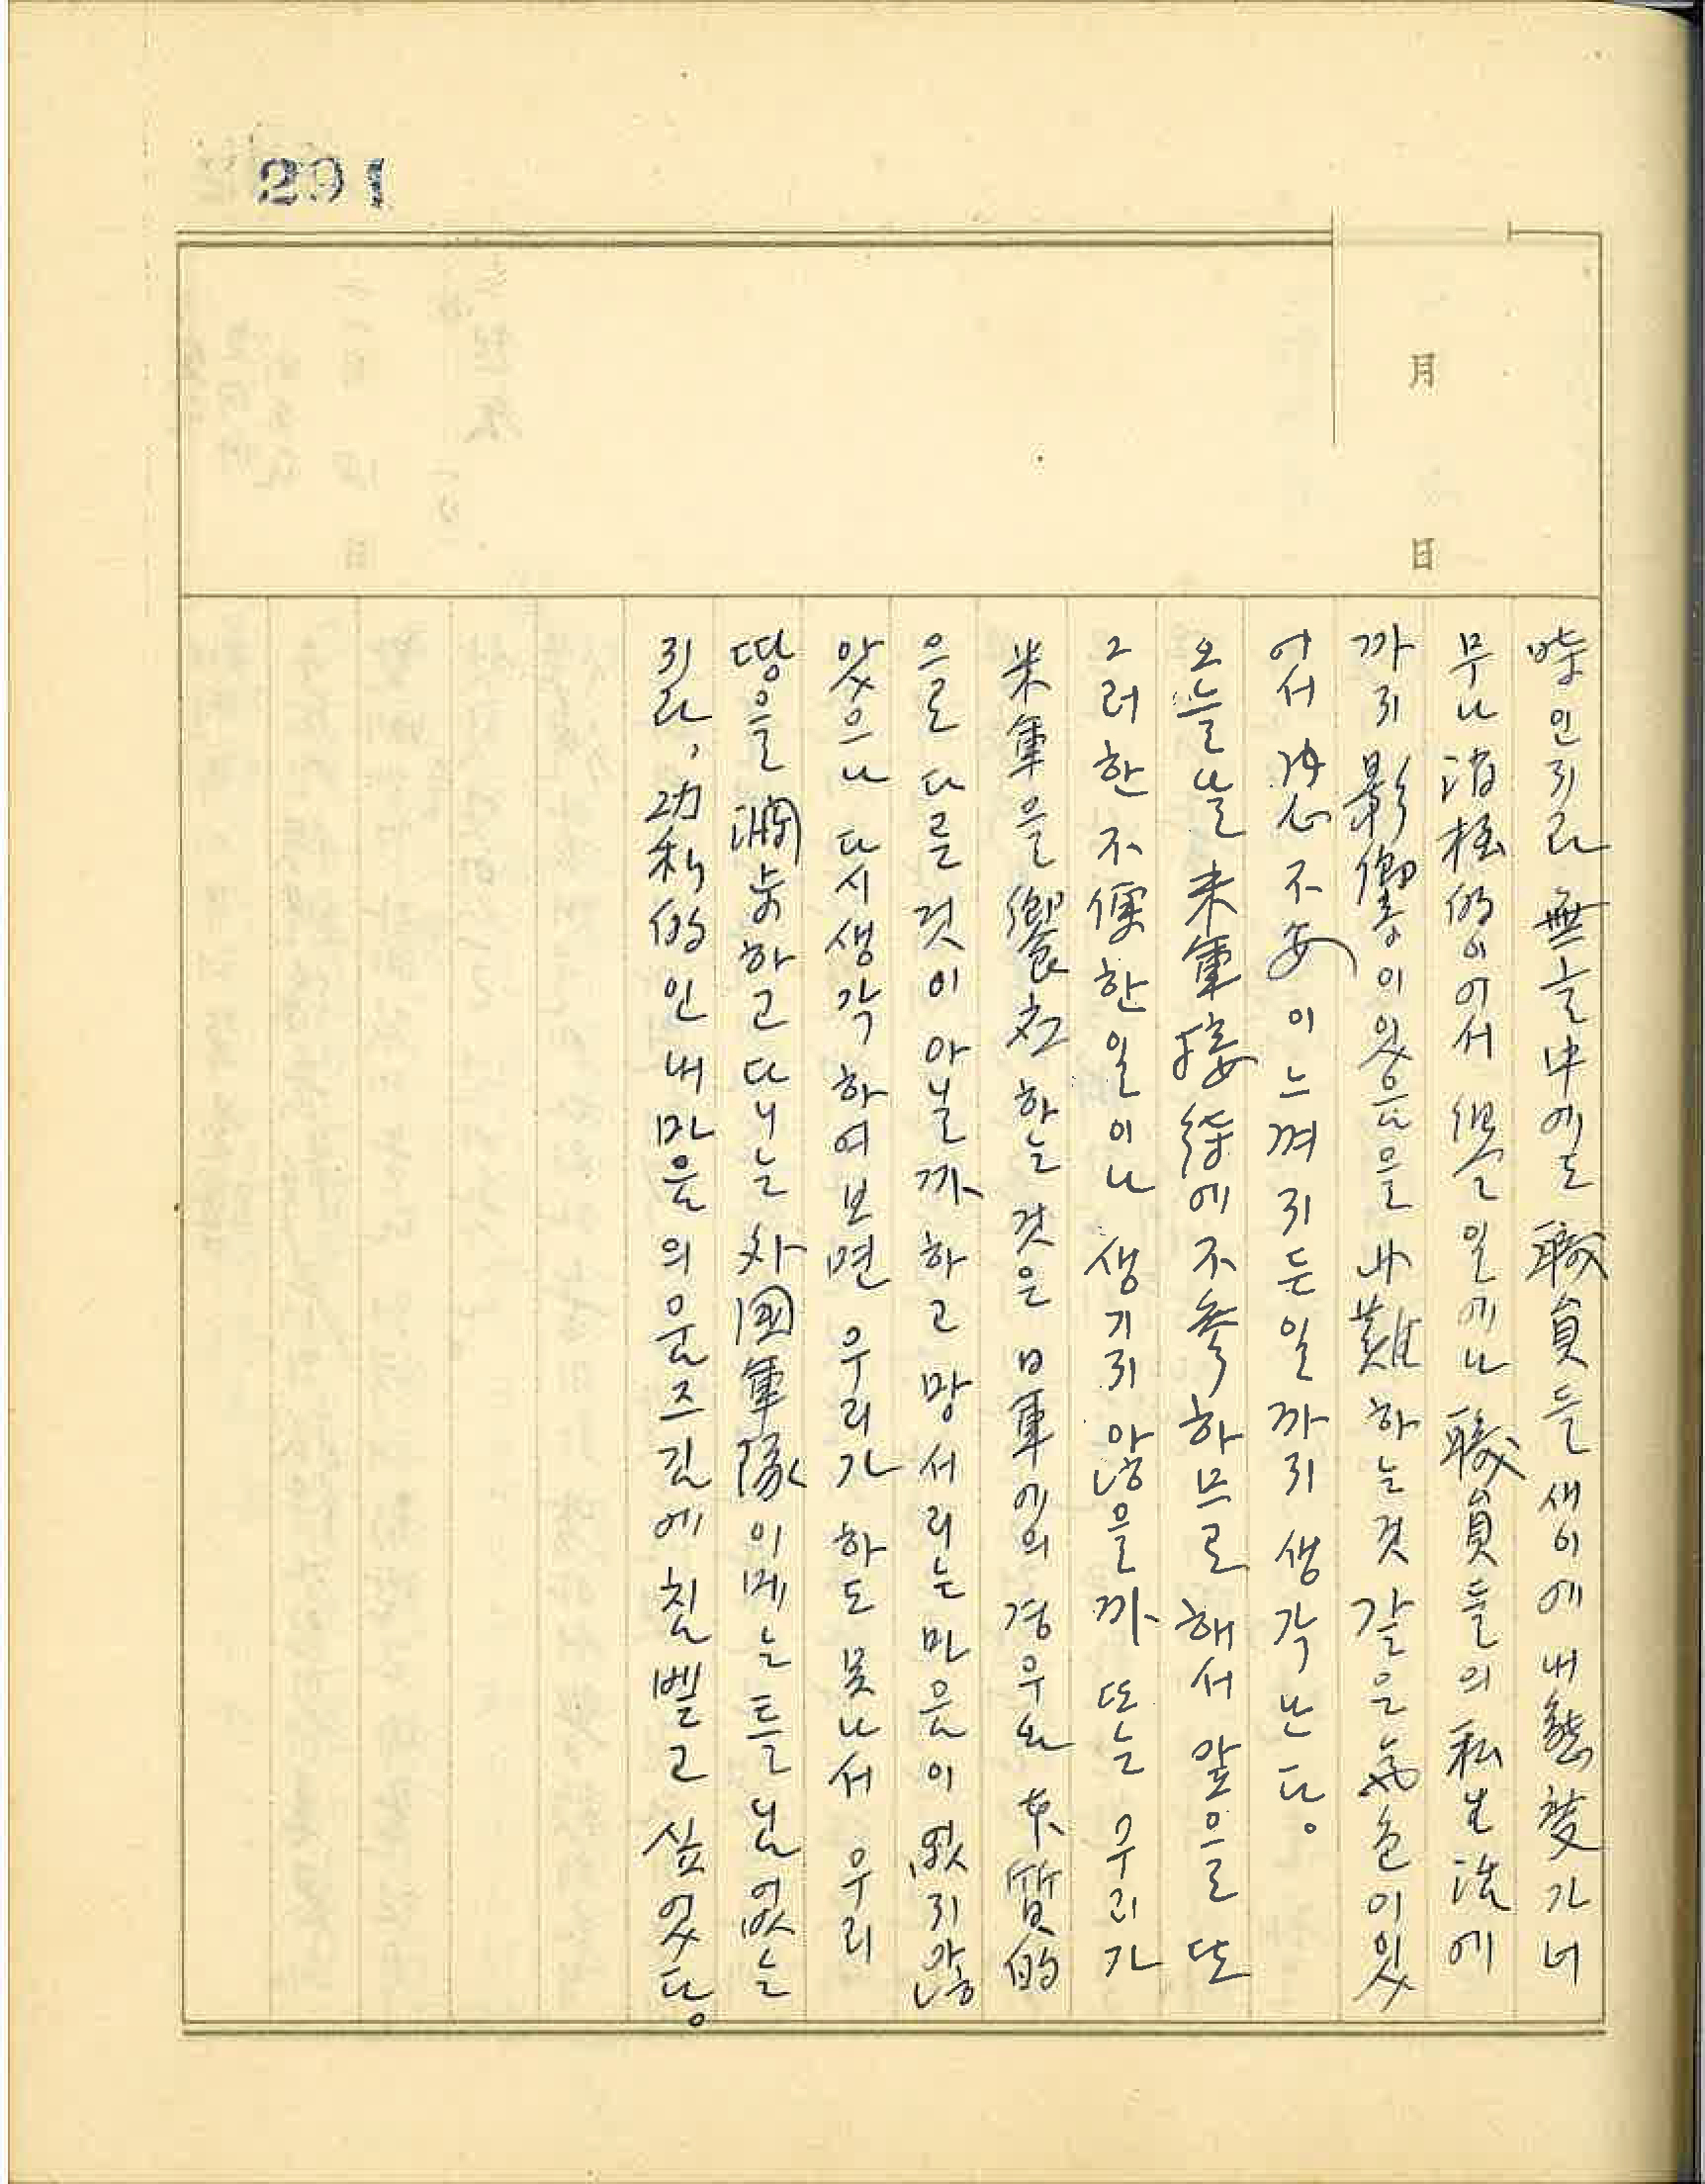 291
月 日
때인지라 無言中에도 職員들 새이에 내態度가 너
무나 消極的이어서 但 일에나 職員들의 私生活에
까지 影響이 있음을 나 難하는것 같은 氣色이 있
어서 不安이 느껴지든일까지 생각난다.
오늘날 米軍接待에 不參하므로 해서 앞으로 또
그러한 不便한 일이나 생기지 않을까 또는 우리가
米軍을 饗応하는 것은 日軍에의 경우와 本質的
으로 다를것이 아닐까하고 망서리는 마음이 없지않
았으나 다시 생각하여 보면 우리가 하도 못나서 우리
땅을 濶步하고 다니는 外國軍隊이메는 틀님없는
지라, 功利的인 내 마음의 움즈김에 침벨고 싶었다.